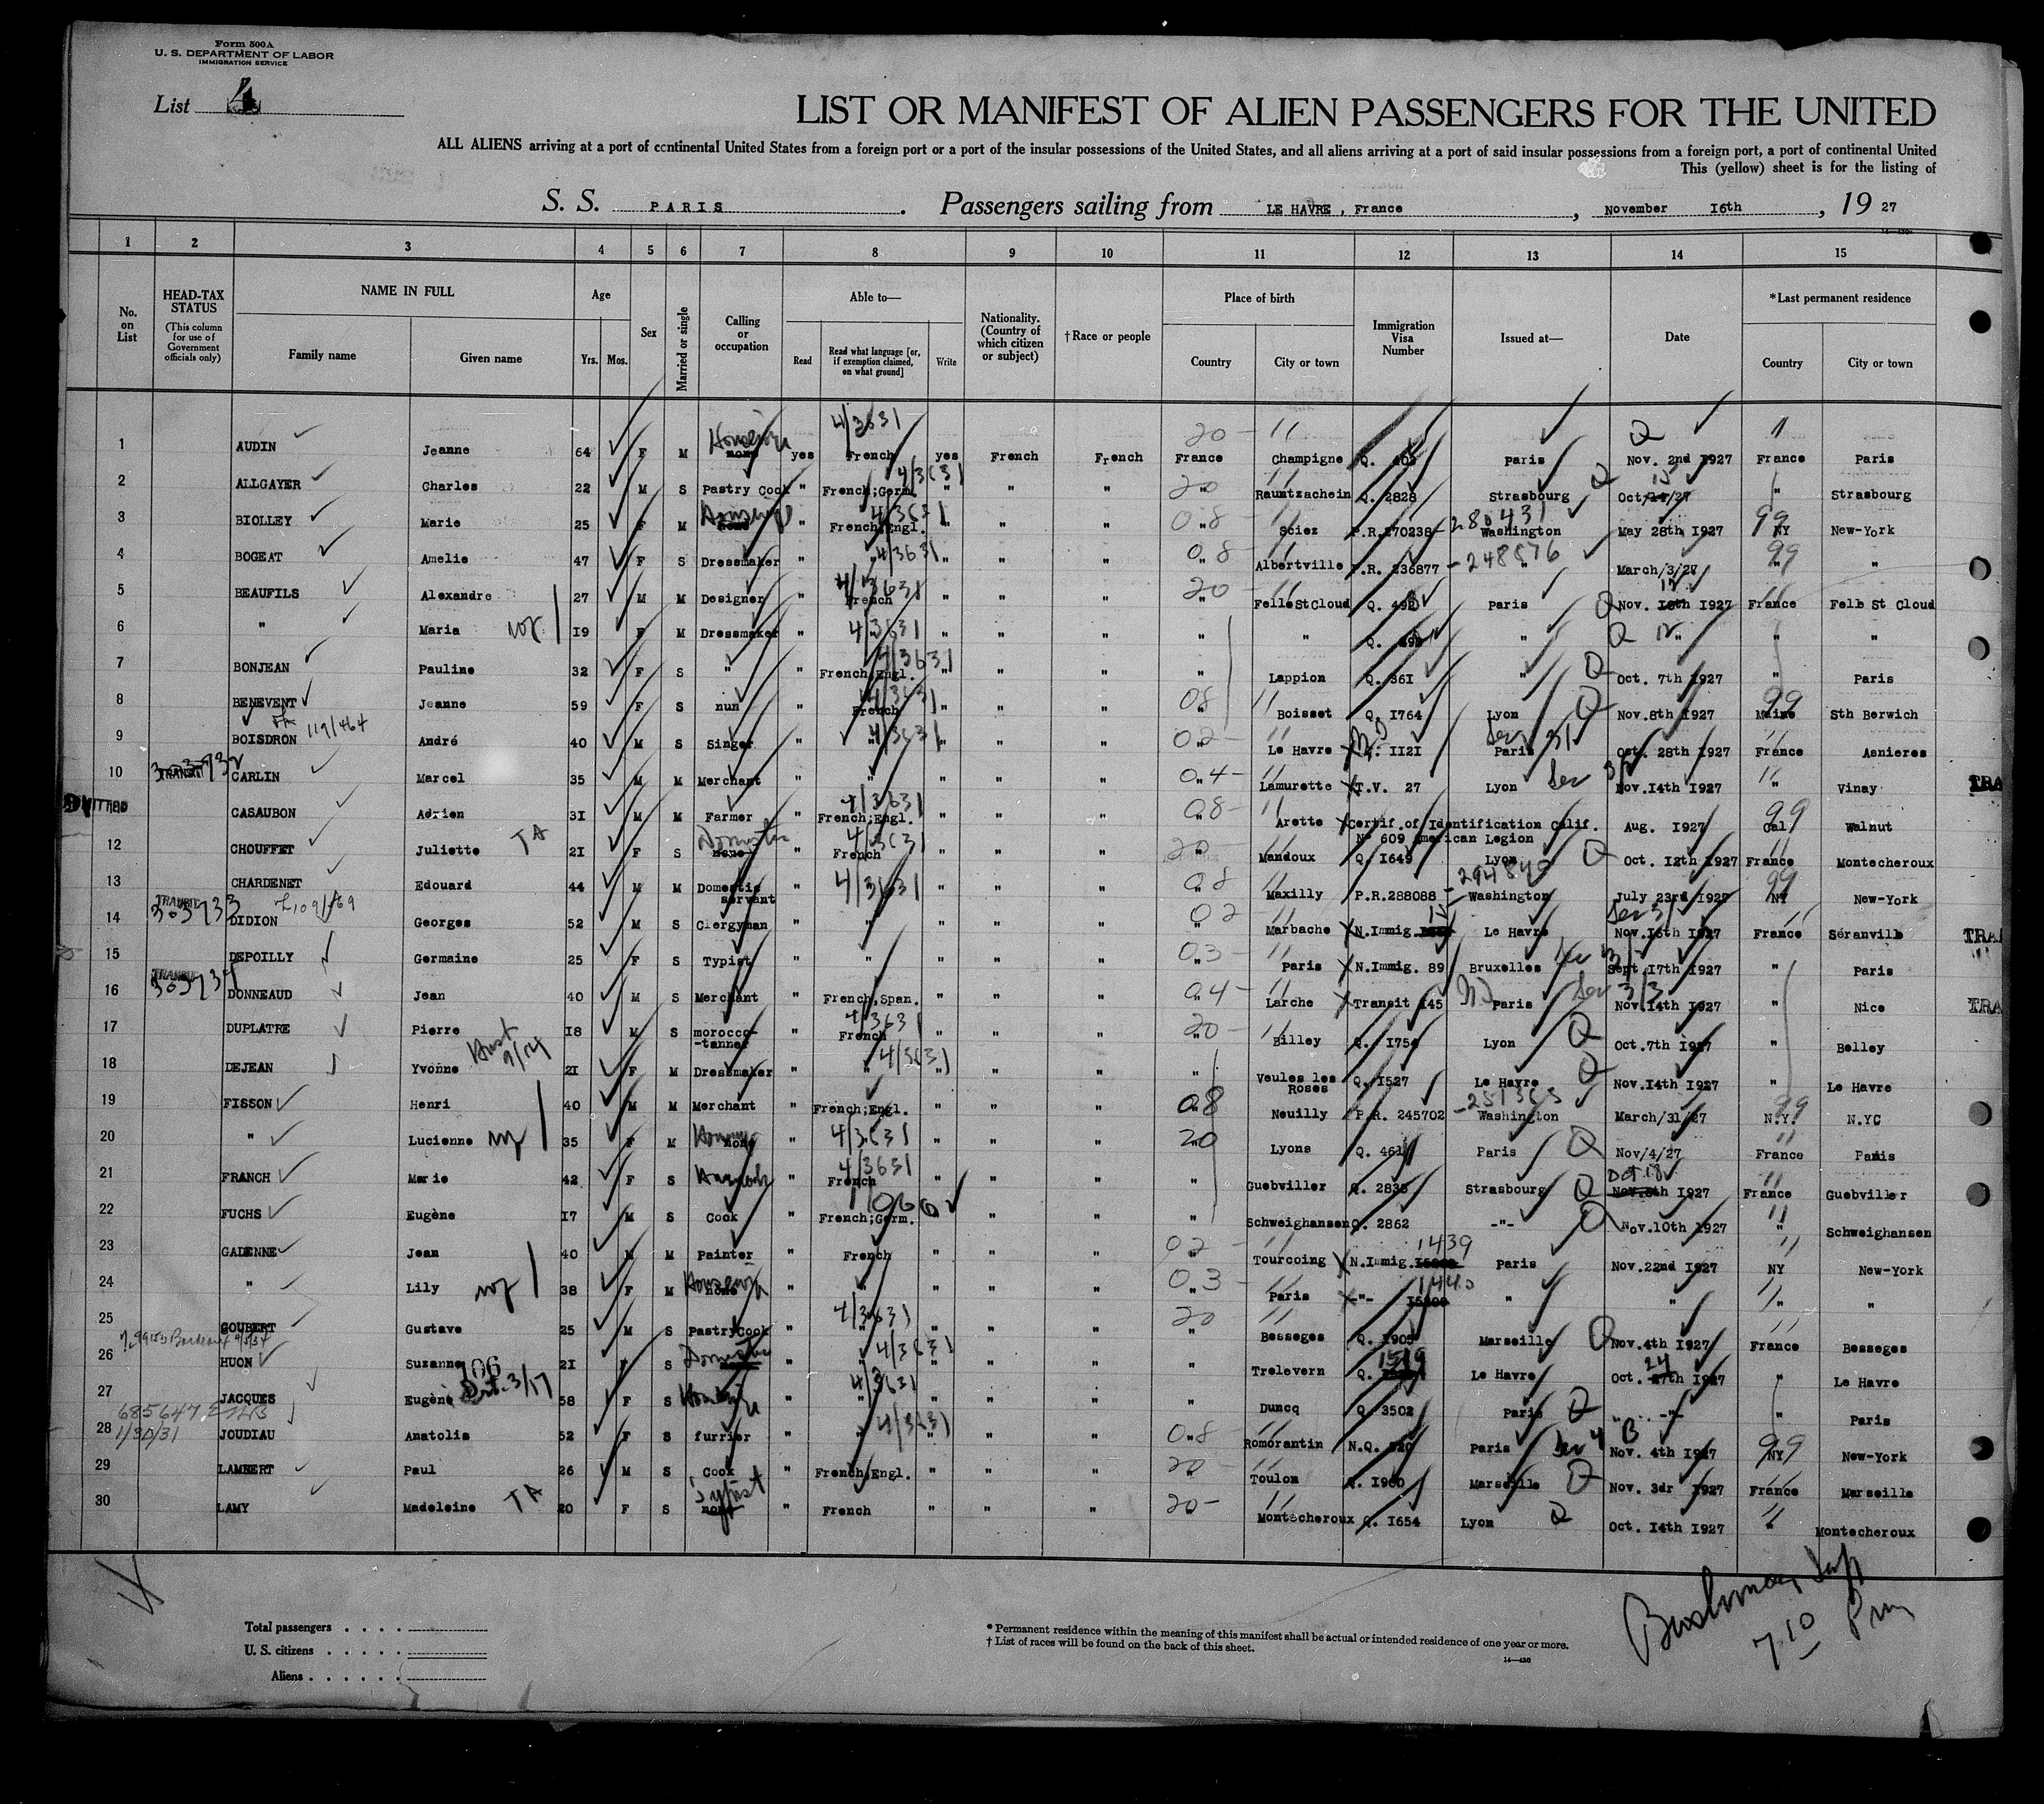 Form 500A
U. S. DEPARTMENT OF LABOR
IMMIGRATION SERVICE
List 4
LIST OR MANIFEST OF ALIEN PASSENGERS FOR THE UNITED
ALL ALIENS arriving at a port of continental United States from a foreign port or a port of the insular possessions of the United States, and all aliens arriving at a port of said insular possessions from a foreign port, a port of continental United
This (yellow) sheet is for the listing of
S. S. PARIS . Passengers sailing from LE HAVRE , France , November 16th , 19 27
1 2 3 4 5 6 7 8 9 10 11 12 13 14 15
No. on List
HEAD-TAX STATUS (This column for use of Government officials only)
NAME IN FULL Family name Given name
Age Yrs. Mos.
Sex
Married or single
Calling or occupation
Able to— Read Read what language [or, if exemption claimed, on what ground] Write
Nationality. (Country of which citizen or subject)
†Race or people
Place of birth Country City or town
Immigration Visa Number
Issued at—
Date
*Last permanent residence Country City or town
1 AUDIN Jeanne 64 F M Housewife none yes French yes French French France Champigne Q. Paris Nov. 2nd 1927 France Paris
2 ALLGAYER Charles 22 M S Pastry Cook " French;Germ. " " " " Rauntzachein Q. 2828 Strasbourg Oct. 15 /27 " Strasbourg
3 BIOLLEY Marie 25 F M Housewife none " French;Engl. " " " " Sciez P.R.270238 280431 Washington May 28th 1927 NY New-York
4 BOGEAT Amelie 47 F S Dressmaker " " " " " " Albertville P.R. 236877 248576 " March/3/27 " "
5 BEAUFILS Alexandre 27 M M Designer " French " " " " FelleStCloud Q. 492 Paris Nov. 1927 France Felle St Cloud
6 " Maria wf 19 F M Dressmaker " " " " " " " Q. " " " "
7 BONJEAN Pauline 32 F S " " French;Engl. " " " " Lappion Q. 361 " Oct. 7th 1927 " Paris
8 BENEVENT Jeanne 59 F S nun " French " " " " Boisset Q. 1764 Lyon Nov.8th 1927 Maine Sth Berwich
9 BOISDRON 119/464 André 40 M S Singer " " " " " " Le Havre 1121 Paris Oct. 28th 1927 France Asnieres
10 TRANSIT CARLIN Marcel 35 M M Merchant " " " " " " Lamurette T.V. 27 Lyon Nov.14th 1927 " Vinay
CASAUBON Adrien 31 M M Farmer " French;Engl. " " " " Arette Certif.of Identification Calif. No 609 American Legion Aug. 1927 Cal Walnut
12 CHOUFFET Juliette TA 21 F S Domestic none " French " " " Mandoux Q. 1649 Lyon Oct. 12th 1927 France Montecheroux
13 CHARDENET Edouard 44 M M Domestic servant " " " " " " Maxilly P.R.288088 294840 Washington July 23rd 1927 NY New-York
14 TRANSIT 303733 DIDION Georges 52 M S Clergyman " " " " " " Marbache N.Immig. Le Havre Nov.16th 1927 France Séranville
15 DEPOILLY Germaine 25 F S Typist " " " " " " Paris N.Immig. 89 Bruxelles Sept.17th 1927 " Paris
16 TRANSIT 303734 DONNEAUD Jean 40 M S Merchant " French,Span. " " " " Larche Transit 145 Paris Nov.14th 1927 " Nice
17 DUPLATRE Pierre 18 M S morocco-tanner " French " " " " Billey Q. 1754 Lyon Oct.7th 1927 " Belley
18 DEJEAN Yvonne 21 F M Dressmaker " " " " " " Veules les Roses Q. 1527 Le Havre Nov.14th 1927 " Le Havre
19 FISSON Henri 40 M M Merchant " French;Engl. " " " " Neuilly P.R. 245702 Washington March/31/27 N.Y. N.YC
20 " Lucienne wf 35 F M none " " " " " " Lyons Q. 461 Paris Nov/4/27 France Paris
21 FRANCH Marie 42 F S " French " " " " Guebviller Q. 2835 Strasbourg Oct 18 Nov.8th 1927 France Guebviller
22 FUCHS Eugène 17 M S Cook " French;Germ. " " " " Schweighansen Q. 2862 -"- Nov.10th 1927 " Schweighansen
23 GADENNE Jean 40 M M Painter " French " " " " Tourcoing N.Immig. 1439 Paris Nov.22nd 1927 NY New-York
24 " Lily wf 38 F M Housewife none " " " " " " Paris -"- 1440 " " " "
25 GOUBERT Gustave 25 M S PastryCook " " " " " " Besseges Q. 1905 Marseille Nov.4th 1927 France Besseges
26 HUON Suzanne 21 F S Domestic " " " " " " Trelevern Q. 1519 Le Havre Oct. 24 27th 1927 " Le Havre
27 JACQUES Eugène 58 F S " " " " " " Duncq Q. 3502 Paris " -"- " Paris
28 JOUDIAU Anatolia 52 F S furrier " " " " " " Romorantin N.Q. 520 Paris Nov. 4th 1927 NY New-York
29 LAMBERT Paul 26 M S Cook " French,Engl. " " " " Toulon Q. 1960 Marseille Nov. 3dr 1927 France Marseille
30 LAMY Madeleine TA 20 F S Typist none " French " " " Montecheroux Q. 1654 Lyon Oct. 14th 1927 " Montecheroux
Total passengers . . . .
U. S. citizens . . . . .
Aliens . . . . . .
* Permanent residence within the meaning of this manifest shall be actual or intended residence of one year or more.
† List of races will be found on the back of this sheet.
14—430
7 10 Pm